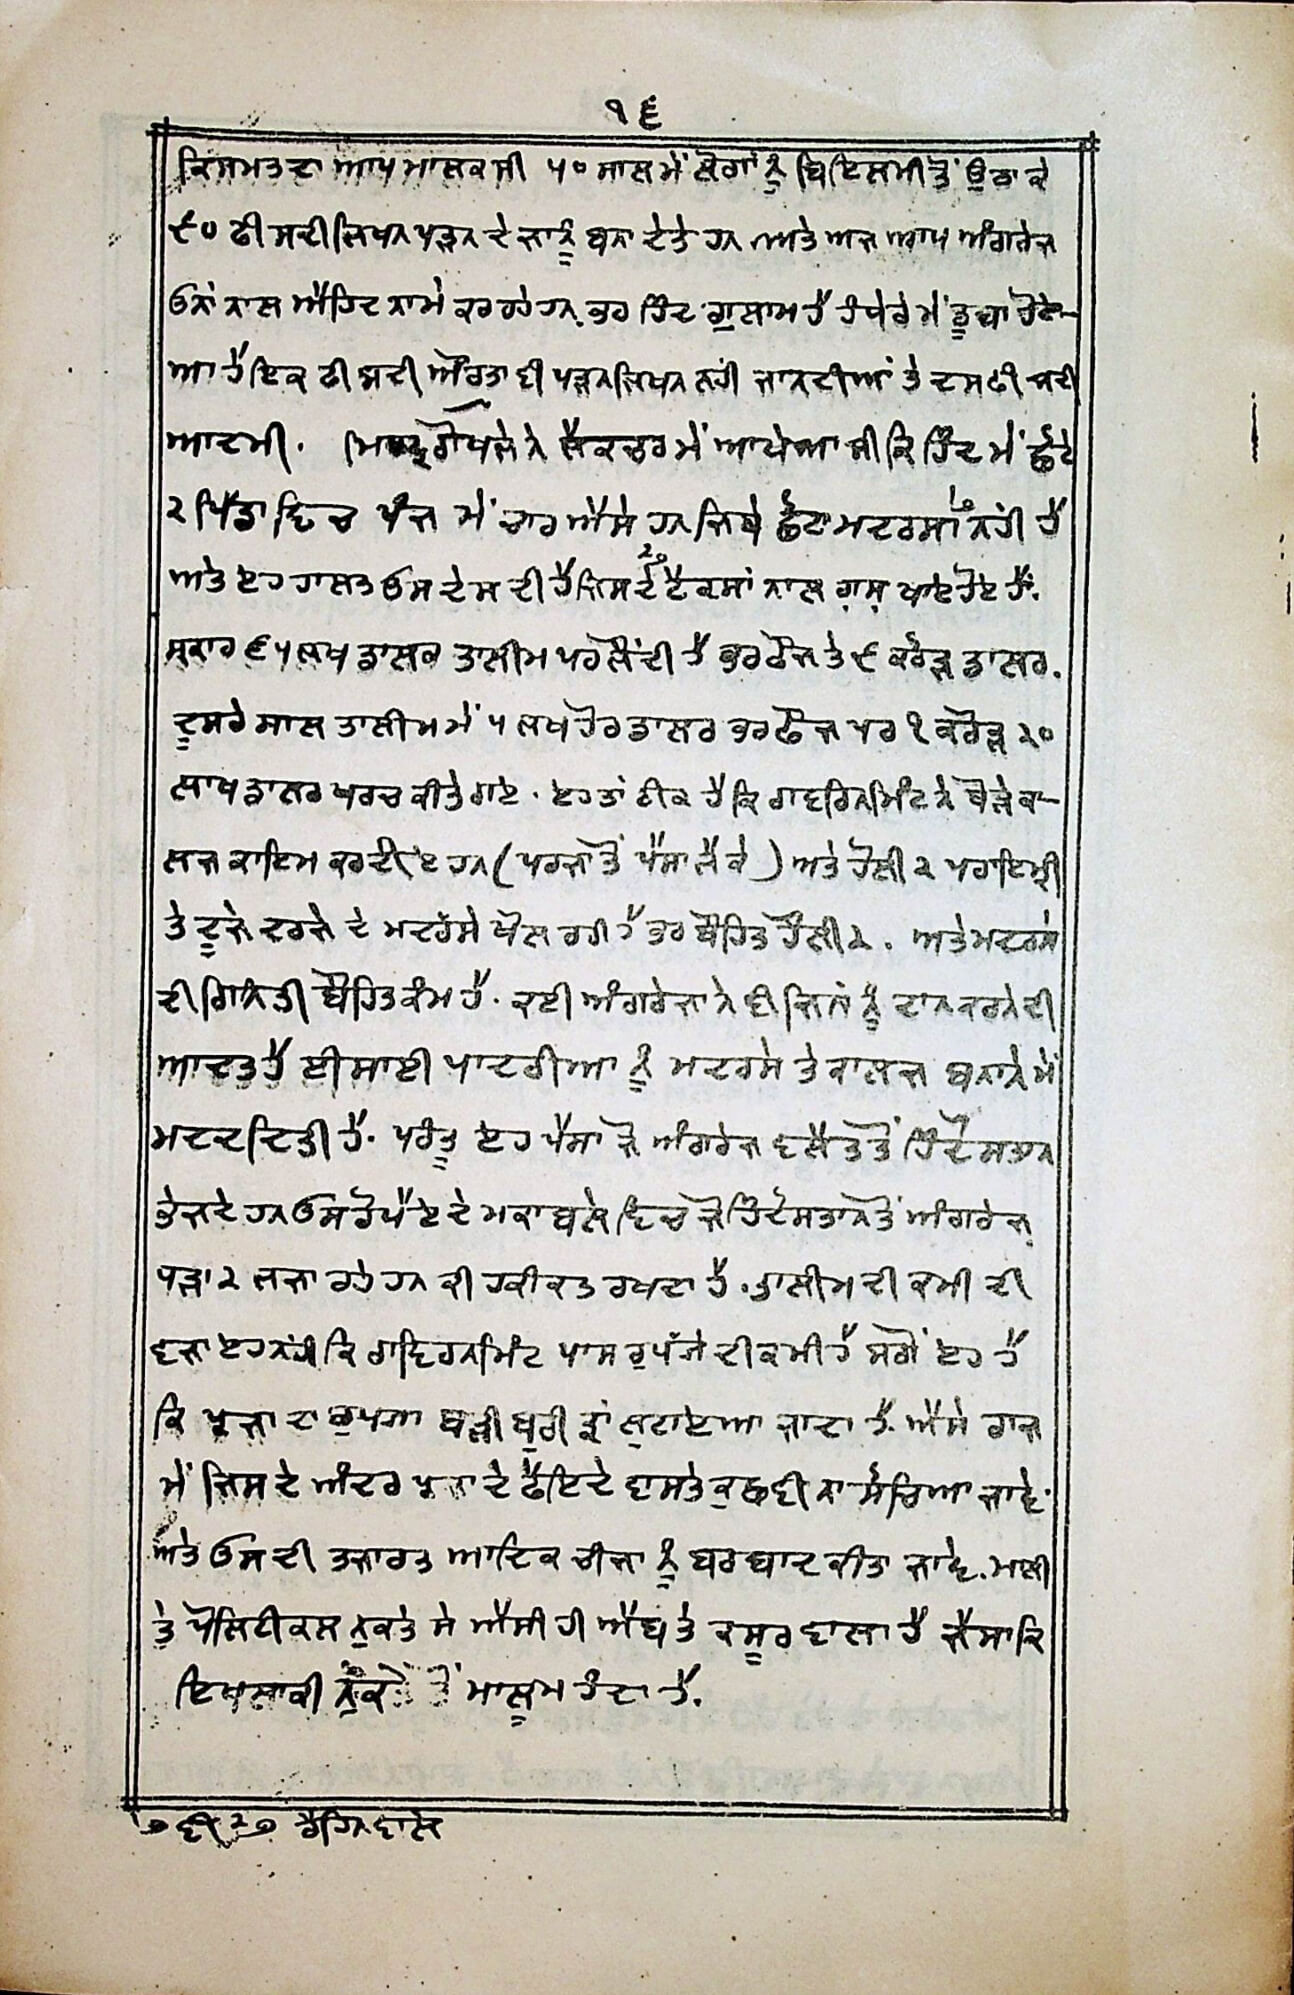 ੧੬
ਕਿਸਮਤ ਦਾ ਆਪ ਮਾਲਕ ਸੀ ੫੦ ਸਾਲ ਮੇਂ ਲੋਗਾਂ ਨੂੰ ਬਿਇਲਮੀ ਤੋਂ ਉਠਾ ਕੇ
੯੦ ਫੀ ਸਦੀ ਲਿਖਨ ਪੜ੍ਹਨ ਦੇ ਜਾਨੂੰ ਬਨਾ ਦੇਤੇ ਹਨ ਅਤੇ ਅਜ ਆਪ ਅੰਗਰੇਜ
ਓਨਾਂ ਨਾਲ ਐਹਿਦ ਨਾਮੇ ਕਰ ਰਹੇ ਹਨ. ਭਰ ਹਿੰਦ ਗੁਲਾਮ ਹੈ ਹੰਧੇਰੇ ਮੇਂ ਡੂਬਾ ਹੋਏ-
ਆ ਹੈ ਇਕ ਫੀ ਸਦੀ ਔਰਤਾ ਵੀ ਪੜਨ ਲਿਖਨ ਨਹੀਂ ਜਾਨਦੀਆਂ ਤੇ ਦਸ ਫੀ ਸਦੀ
ਆਦਮੀ. ਗੋਖਲੇ ਨੇ ਲੈਕਚਰ ਮੇਂ ਆਖੇਆ ਸੀ ਕਿ ਹਿੰਦ ਮੇਂ ਛੋਟੇ
੨ ਪਿੰਡਾ ਵਿਚ ਪੰਜ ਮੇਂ ਚਾਰ ਐਸੇ ਹਨ ਜਿਥੇ ਛੋਟਾ ਮਦਰਸਾ ਨਹੀਂ ਹੈ
ਅਤੇ ਏਹ ਹਾਲਤ ਓਸ ਦੇਸ ਦੀ ਹੈ ਜਿਸ ਦੇ ਟੈਕਸਾਂ ਨਾਲ ਗੁਸ੍ਹ ਖਾਏ ਹੋਏ ਹੈਂ.
ਸ੍ਰਕਾਰ ੬੫ ਲਖ ਡਾਲਰ ਤਾਲੀਮ ਪਰ ਲੌਂਦੀ ਹੈ ਭਰ ਫੌਜ ਤੇ ੯ ਕਰੋੜ ਡਾਲਰ.
ਦੂਸਰੇ ਸਾਲ ਤਾਲੀਮ ਮੇਂ ੫ ਲਖ ਹੋਰ ਡਾਲਰ ਭਰ ਫੌਜ ਪਰ ੧ ਕਰੋੜ ੨੦
ਲਾਖ ਡਾਲਰ ਖਰਚ ਕੀਤੇ ਗਏ. ਏਹ ਤਾਂ ਠੀਕ ਹੈ ਕਿ ਗਵਰਿਨਮਿੰਟ ਨੇ ਥੋੜੇ ਕਾ-
ਲਜ ਕਾਇਮ ਕਰ ਦੀਏ ਹਨ (ਪਰਜਾ ਤੋਂ ਪੈਸਾ ਲੈ ਕੇ) ਅਤੇ ਹੌਲੀ ੨ ਪਰਾਇਮ੍ਰੀ
ਤੇ ਦੂਜੇ ਦਰਜੇ ਦੇ ਮਦਰੱਸੇ ਖੋਲ ਰਹੀ ਹੈ ਭਰ ਬੌਹਿਤ ਹੌਲੀ ੨. ਅਤੇ ਮਦਰਸੇ
ਦੀ ਗਿੰਨਤੀ ਬੌਹਿਤ ਕੰਮ ਹੈ. ਕਈ ਅੰਗਰੇਜਾ ਨੇ ਵੀ ਜਿਨਾਂ ਨੂੰ ਦਾਨ ਕਰਨੇ ਦੀ
ਆਦਤ ਹੈ ਈਸਾਈ ਪਾਦਰੀਆ ਨੂੰ ਮਦਰਸੇ ਤੇ ਕਾਲਜ ਬਨਾਨੇ ਮੇਂ
ਮਦਦ ਦਿਤੀ ਹੈ. ਪਰੰਤੂ ਏਹ ਪੈਸਾ ਜੋ ਅੰਗਰੇਜ ਵਲੈਤ ਤੋਂ ਹਿੰਦੋਸਤਾਨ
ਭੇਜਦੇ ਹਨ ਓਸ ਰੋਪੈਏ ਦੇ ਮਕਾਬਲੇ ਵਿਚ ਜੋ ਹਿੰਦੋਸਤਾਨ ਤੋਂ ਅੰਗਰੇਜ਼
ਪੜਾ ੨ ਲਜਾ ਰਹੇ ਹਨ ਕੀ ਹਕੀਕਤ ਰਖਦਾ ਹੈ. ਤਾਲੀਮ ਦੀ ਕਮੀ ਦੀ
ਵਜਾ ਏਹ ਨਹੀਂ ਕਿ ਗਵਿਰਨਮਿੰਟ ਪਾਸ ਰੁਪੱਗੇ ਦੀ ਕਮੀ ਹੈ ਸਗੋਂ ਏਹ ਹੈ
ਕਿ ਪ੍ਰਜਾ ਦਾ ਰੁਪਗਾ ਬੜੀ ਬੁਰੀ ਤ੍ਰਾਂ ਲੁਟਾਏਆ ਜਾਦਾ ਹੈ. ਐਸੇ ਰਾਜ
ਮੇਂ ਜਿਸ ਦੇ ਅੰਦਰ ਪ੍ਰਜਾ ਦੇ ਫੈਇਦੇ ਵਾਸਤੇ ਕੁਛ ਵੀ ਨਾ ਸੋਚਿਆ ਜਾਵੇ.
ਅਤੇ ਓਸ ਦੀ ਤਜਾਰਤ ਆਦਿਕ ਚੀਜਾ ਨੂੰ ਬਰਬਾਦ ਕੀਤਾ ਜਾਵੇ. ਮਾਲੀ
ਤੇ ਪੋਲਿਟੀਕਲ ਨੁਕਤੇ ਸੇ ਐਸੀ ਹੀ ਐਬ ਤੇ ਕਸੂਰ ਵਾਲਾ ਹੈ ਜੈਸਾ ਕਿ
ਇਖਲਾਕੀ ਤੋਂ ਮਾਲੂਮ ਹੰਦਾ ਹੈ.